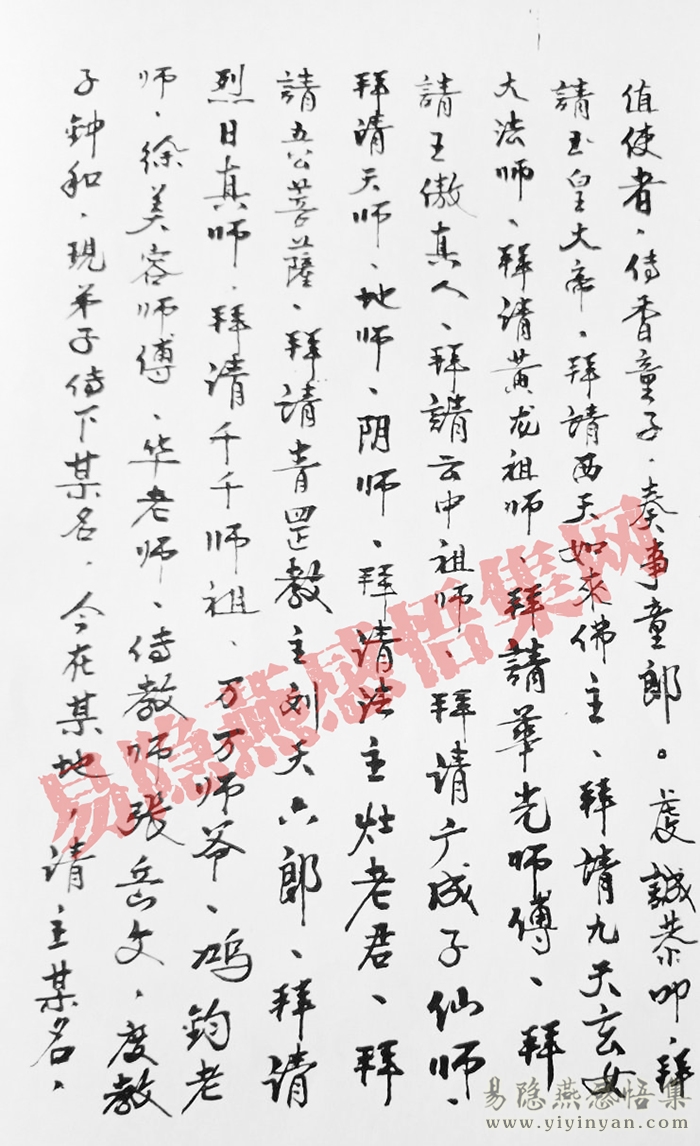 值使者、侍香童子、奏事童郎。虔誠恭叩、拜
請玉皇大帝、拜請西天如來佛主、拜請九天玄女
大法师、拜请黄龙祖师、拜請華光师傅、拜
請王傲真人、拜請云中祖师、拜请广成子仙师、
拜请天师、地师、阴师、拜请法主灶老君、拜
請五公菩薩、拜請青罡教主刘天六郎、拜请
烈日真师、拜请千千师祖、万万师爷、鸠钧老
师、徐美容师傅、华老师、侍教师张岳文、度教
子钟和、現弟子侍下某名、今在某地、请主某名、
易隐燕感悟集网
易隐燕感悟集
www.yiyinyan.com